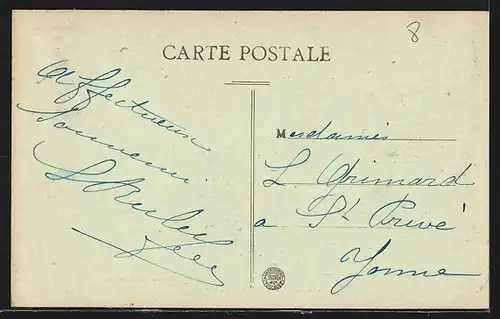 8
CARTE POSTALE
Affectueux
Souvenir
Mesdames
L Grimard
a St Privé
Yonne